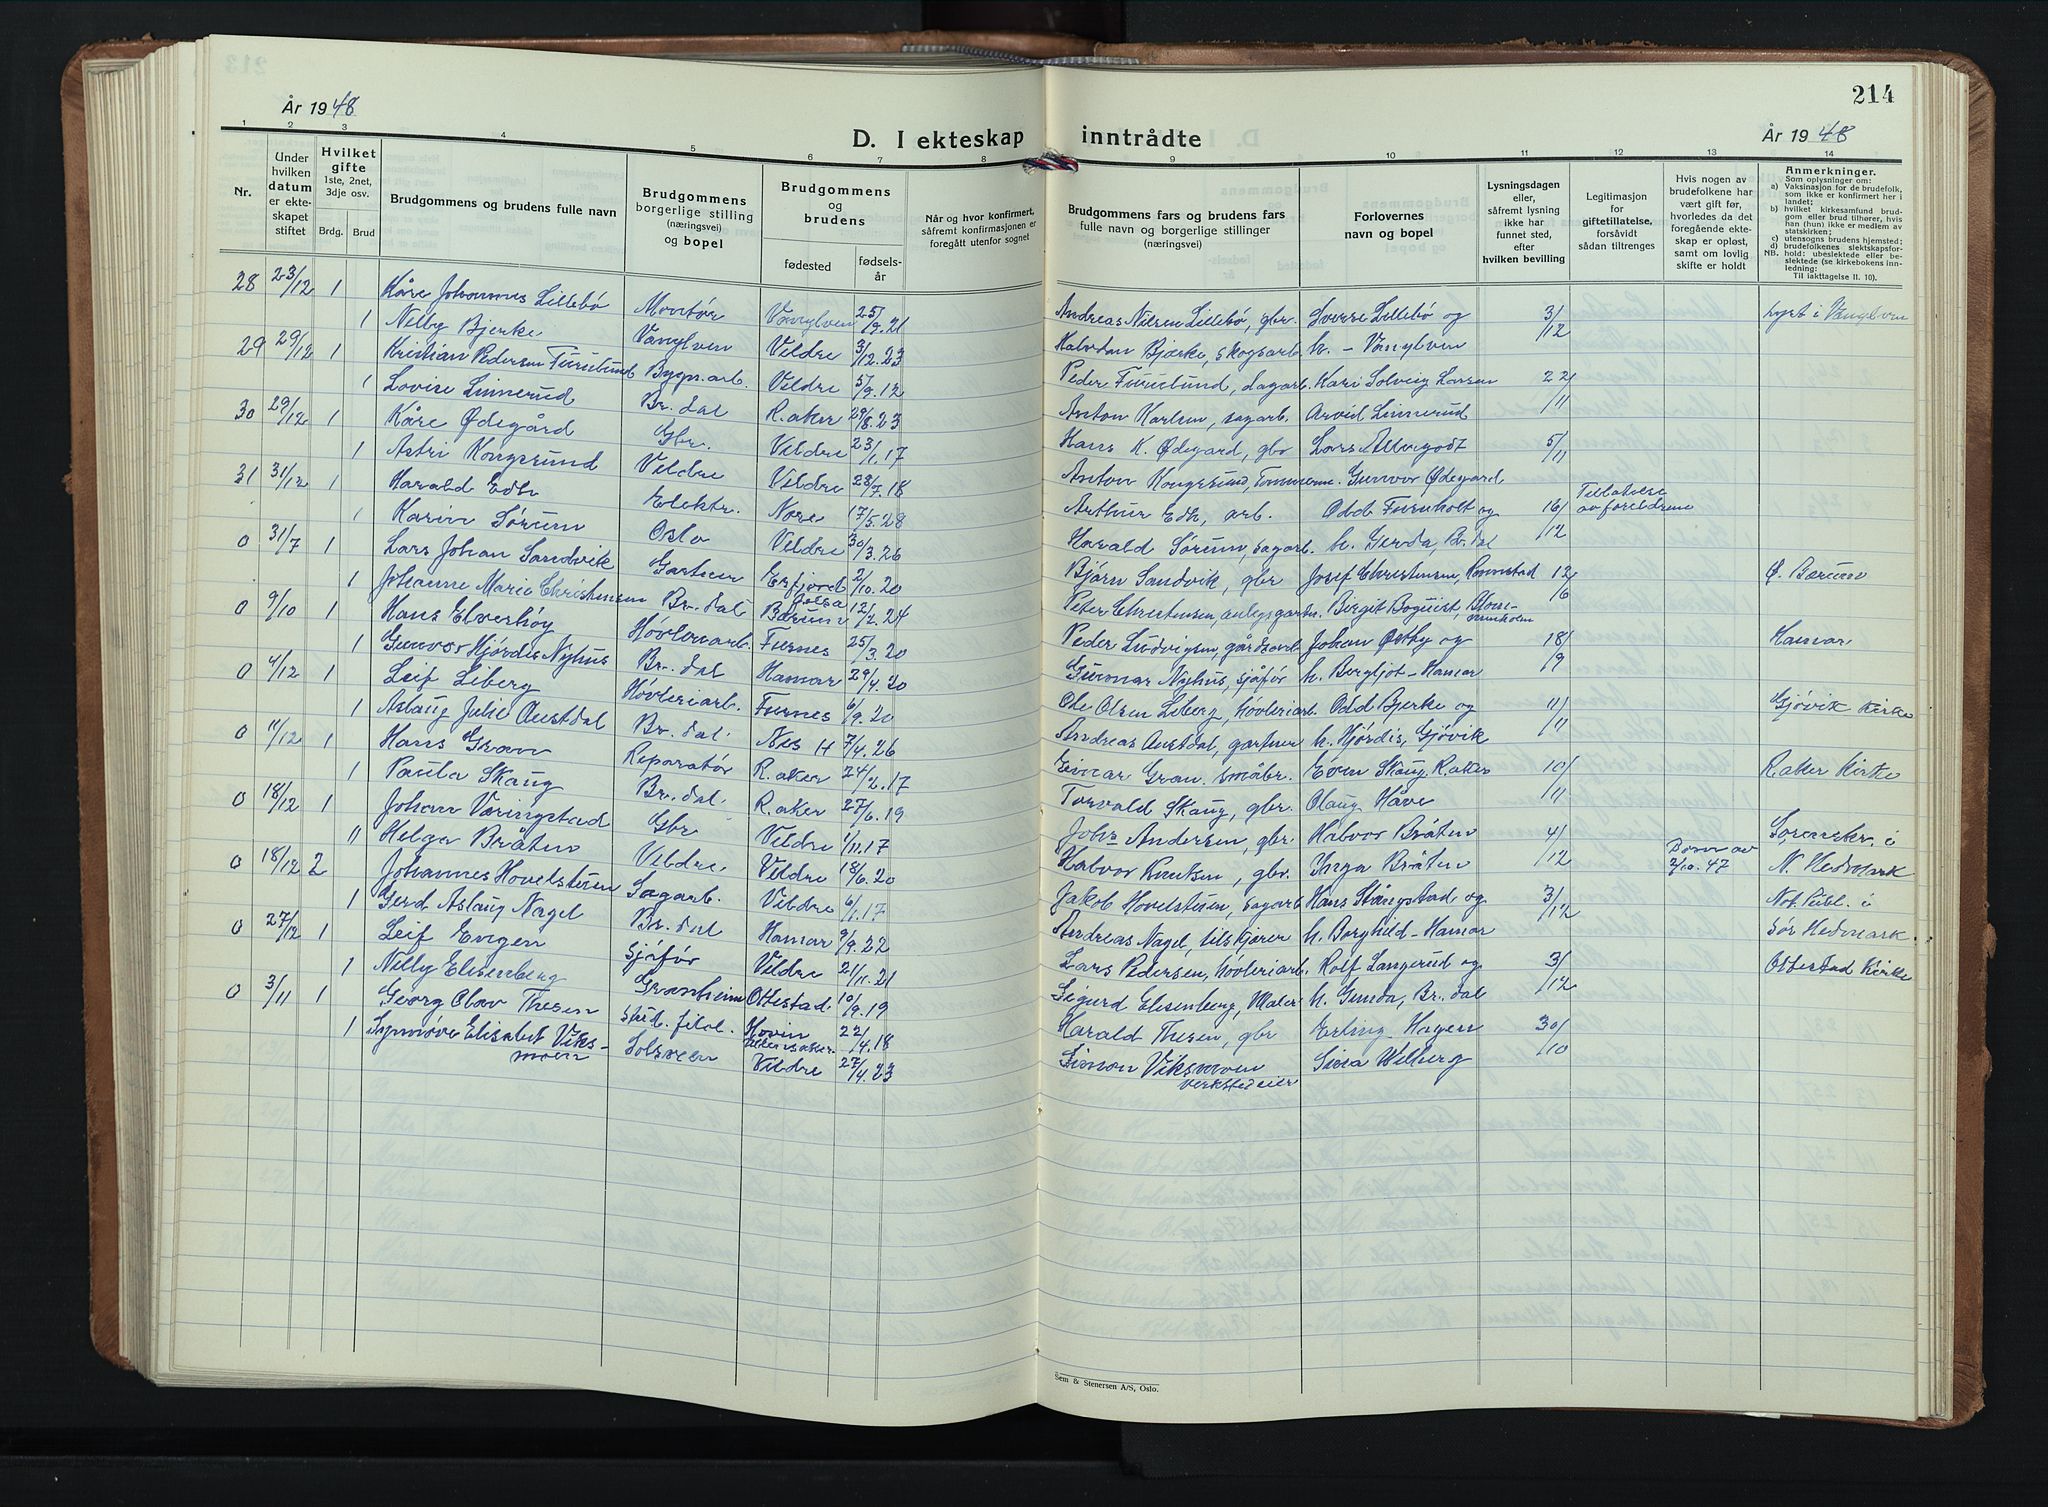 214
År 1948
D. I ekteskap inntrådte
År 1948
1 2 3 4 5 6 7 8 9 10 11 12 13 14
Nr.
Under hvilken datum er ekteskapet stiftet
Hvilket gifte 1ste, 2net, 3dje osv.
Brdg. Brud
Brudgommens og brudens fulle navn
Brudgommens borgerlige stilling (næringsvei) og bopel
Brudgommens og brudens
fødested
fødselsår
Når og hvor konfirmert, såfremt konfirmasjonen er foregått utenfor sognet
Brudgommens fars og brudens fars fulle navn og borgerlige stillinger (næringsvei)
Forlovernes navn og bopel
Lysningsdagen eller, såfremt lysning ikke har funnet sted, efter hvilken bevilling
Legitimasjon for giftetillatelse, forsåvidt sådan tiltrenges
Hvis nogen av brudefolkene har vært gift før, hvorledes da det foregående ekteskap er opløst, samt om lovlig skifte er holdt
Anmerkninger.
Som oplysninger om:
a) Vaksinasjon for de brudefolk, som ikke er konfirmert her i landet;
b) hvilket kirkesamfund brudgom eller brud tilhører, hvis han (hun) ikke er medlem av statskirken;
c) utensogns brudens hjemsted;
d) brudefolkenes slektskapsforhold: ubeslektede eller beslektede (se kirkebokens innledning:
NB. Til iakttagelse II. 10).
28 23/12 1 Kåre Johannes Lillebø Montør Vanylven 25/9.21 Andreas Nilsen Lillebø, gbr. Sverre Lillebø og 3/12 Lyst i Vanylven
1 Nelly Bjerke Vanylven Veldre 3/12.23 Halvdan Bjerke, skogsarb. h. - Vanylven
29 29/12 1 Kristian Pedersen Furulund Bygn.arb. Veldre 5/9.12 Peder Furulund, sagarb. Kari Solveig Larsen 22/11
1 Lovise Linnerud Br.dal R.aker 29/8.23 Anton Karlsen, sagarb. Arvid Linnerud
30 29/12 1 Kåre Ødegård Gbr. Veldre 23/1.17 Hans K. Ødegård, gbr Lars Allergodt 5/11
1 Astri Kongsrund Veldre Veldre 28/7.18 Anton Kongsrund, Tømmerm. Gunvor Ødegård
31 31/12 1 Harald Edh Elektr. Nore 17/5.28 Arthur Edh, arb. Odd Furuholt og 16/12 Tillatelse av foreldrene
1 Karin Sørum Oslo Veldre 30/3.26 Harald Sørum, sagarb. h. Gerda, Br.dal
0 31/7 1 Lars Johan Sandvik Gartner Erfjord Jelsa 2/10.20 Bjørn Sandvik, gbr Josef Christensen, 12/6 Ø. Bærum
1 Johanne Marie Christensen Br.dal Bærum 12/2.24 Peter Christensen, anlegsgartn. Birgit Boquist,
0 9/10 1 Hans Elverhøy Høvleriarb. Furnes 25/3.20 Peder Ludvigsen, gårdsarb Johan Østby og 18/9 Hamar
1 Gunvor Hjørdis Nyhus Br.dal Hamar 29/4.20 Gunnar Nyhus, sjåfør h. Bergljot - Hamar
0 4/12 1 Leif Liberg Høvleriarb. Furnes 6/9.20 Ole Olsen Liberg, høvleriarb. Odd Bjerke og 11/11 Gjøvik Kirke
1 Aslaug Julie Austdal Br.dal Nes H 7/4.26 Andreas Austdal, gartner h. Hjørdis, Gjøvik
0 11/12 1 Hans Gran Reparatør R.aker 24/2.17 Einar Gran småbr. Even Skaug R.aker 10/11 R.aker Kirke
1 Paula Skaug Br.dal. R.aker 27/6.19 Torvald Skaug, gbr. Olaug Håve
0 18/12 1 Johan Væringstad Gbr Veldre 1/11.17 John Andersen, gbr. Halvor Bråten 4/12 Sorenskr. i
11 Helga Bråten Veldre. Veldre 18/6.20 Halvor Knutsen, gbr. Inga Bråten N. Hedmark
0 18/12 2 Johannes Hovelsteen Sagarb. Veldre 6/1.17 Jakob Hovelsteen, sagarb Hans Stangstad og 3/12 Dom av 2/10.47 Not. Publ. i
1 Gerd Aslaug Nagel Br.dal Hamar 9/9.22 Andreas Nagel, tilskjærer h. Borghild - Hamar Sør Hedmark.
0 27/12 1 Leif Engen Sjåfør Veldre 21/11.21 Lars Pedersen, høvleriarb. Rolf Langerud og 3/12 Ottestad Kirke
1 Nelly Elisenberg Granheim Ottestad 10/9.19 Sigurd Elisenberg, Maler h. Gunda, Br.dal
0 3/11 1 Georg Olav Thesen stud. filol. Hovin Ullensaker 22/4.18 Harald Thesen, gbr Erling Hagen 30/10
1 Synnøve Elisabet Viksmoen Solsveen Veldre 27/4.23 Simon Viksmoen verkstedeier Sina Wilberg
Sem & Stenersen A/S, Oslo.